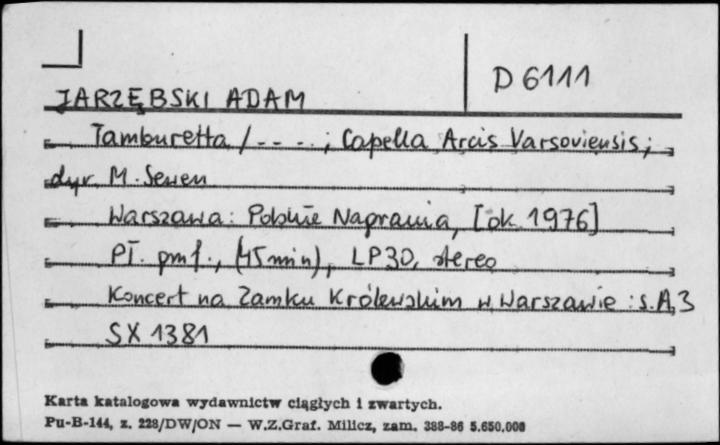 D 6111
JARZĘBSKI ADAM
Tamburetta / - - - . ; Capella Arcis Varsoviensis ;
dyr. M. Sewen
Warszawa : Polskie Nagrania, [ok. 1976]
Pł. pmf., (45 min), LP30, stereo
Koncert na Zamku Królewskim w Warszawie : s. A, 3
SX 1381
Karta katalogowa wydawnictw ciągłych i zwartych.
Pu-B-144, z. 228/DW/ON — W.Z.Graf. Milicz, zam. 388-86 5.650.000